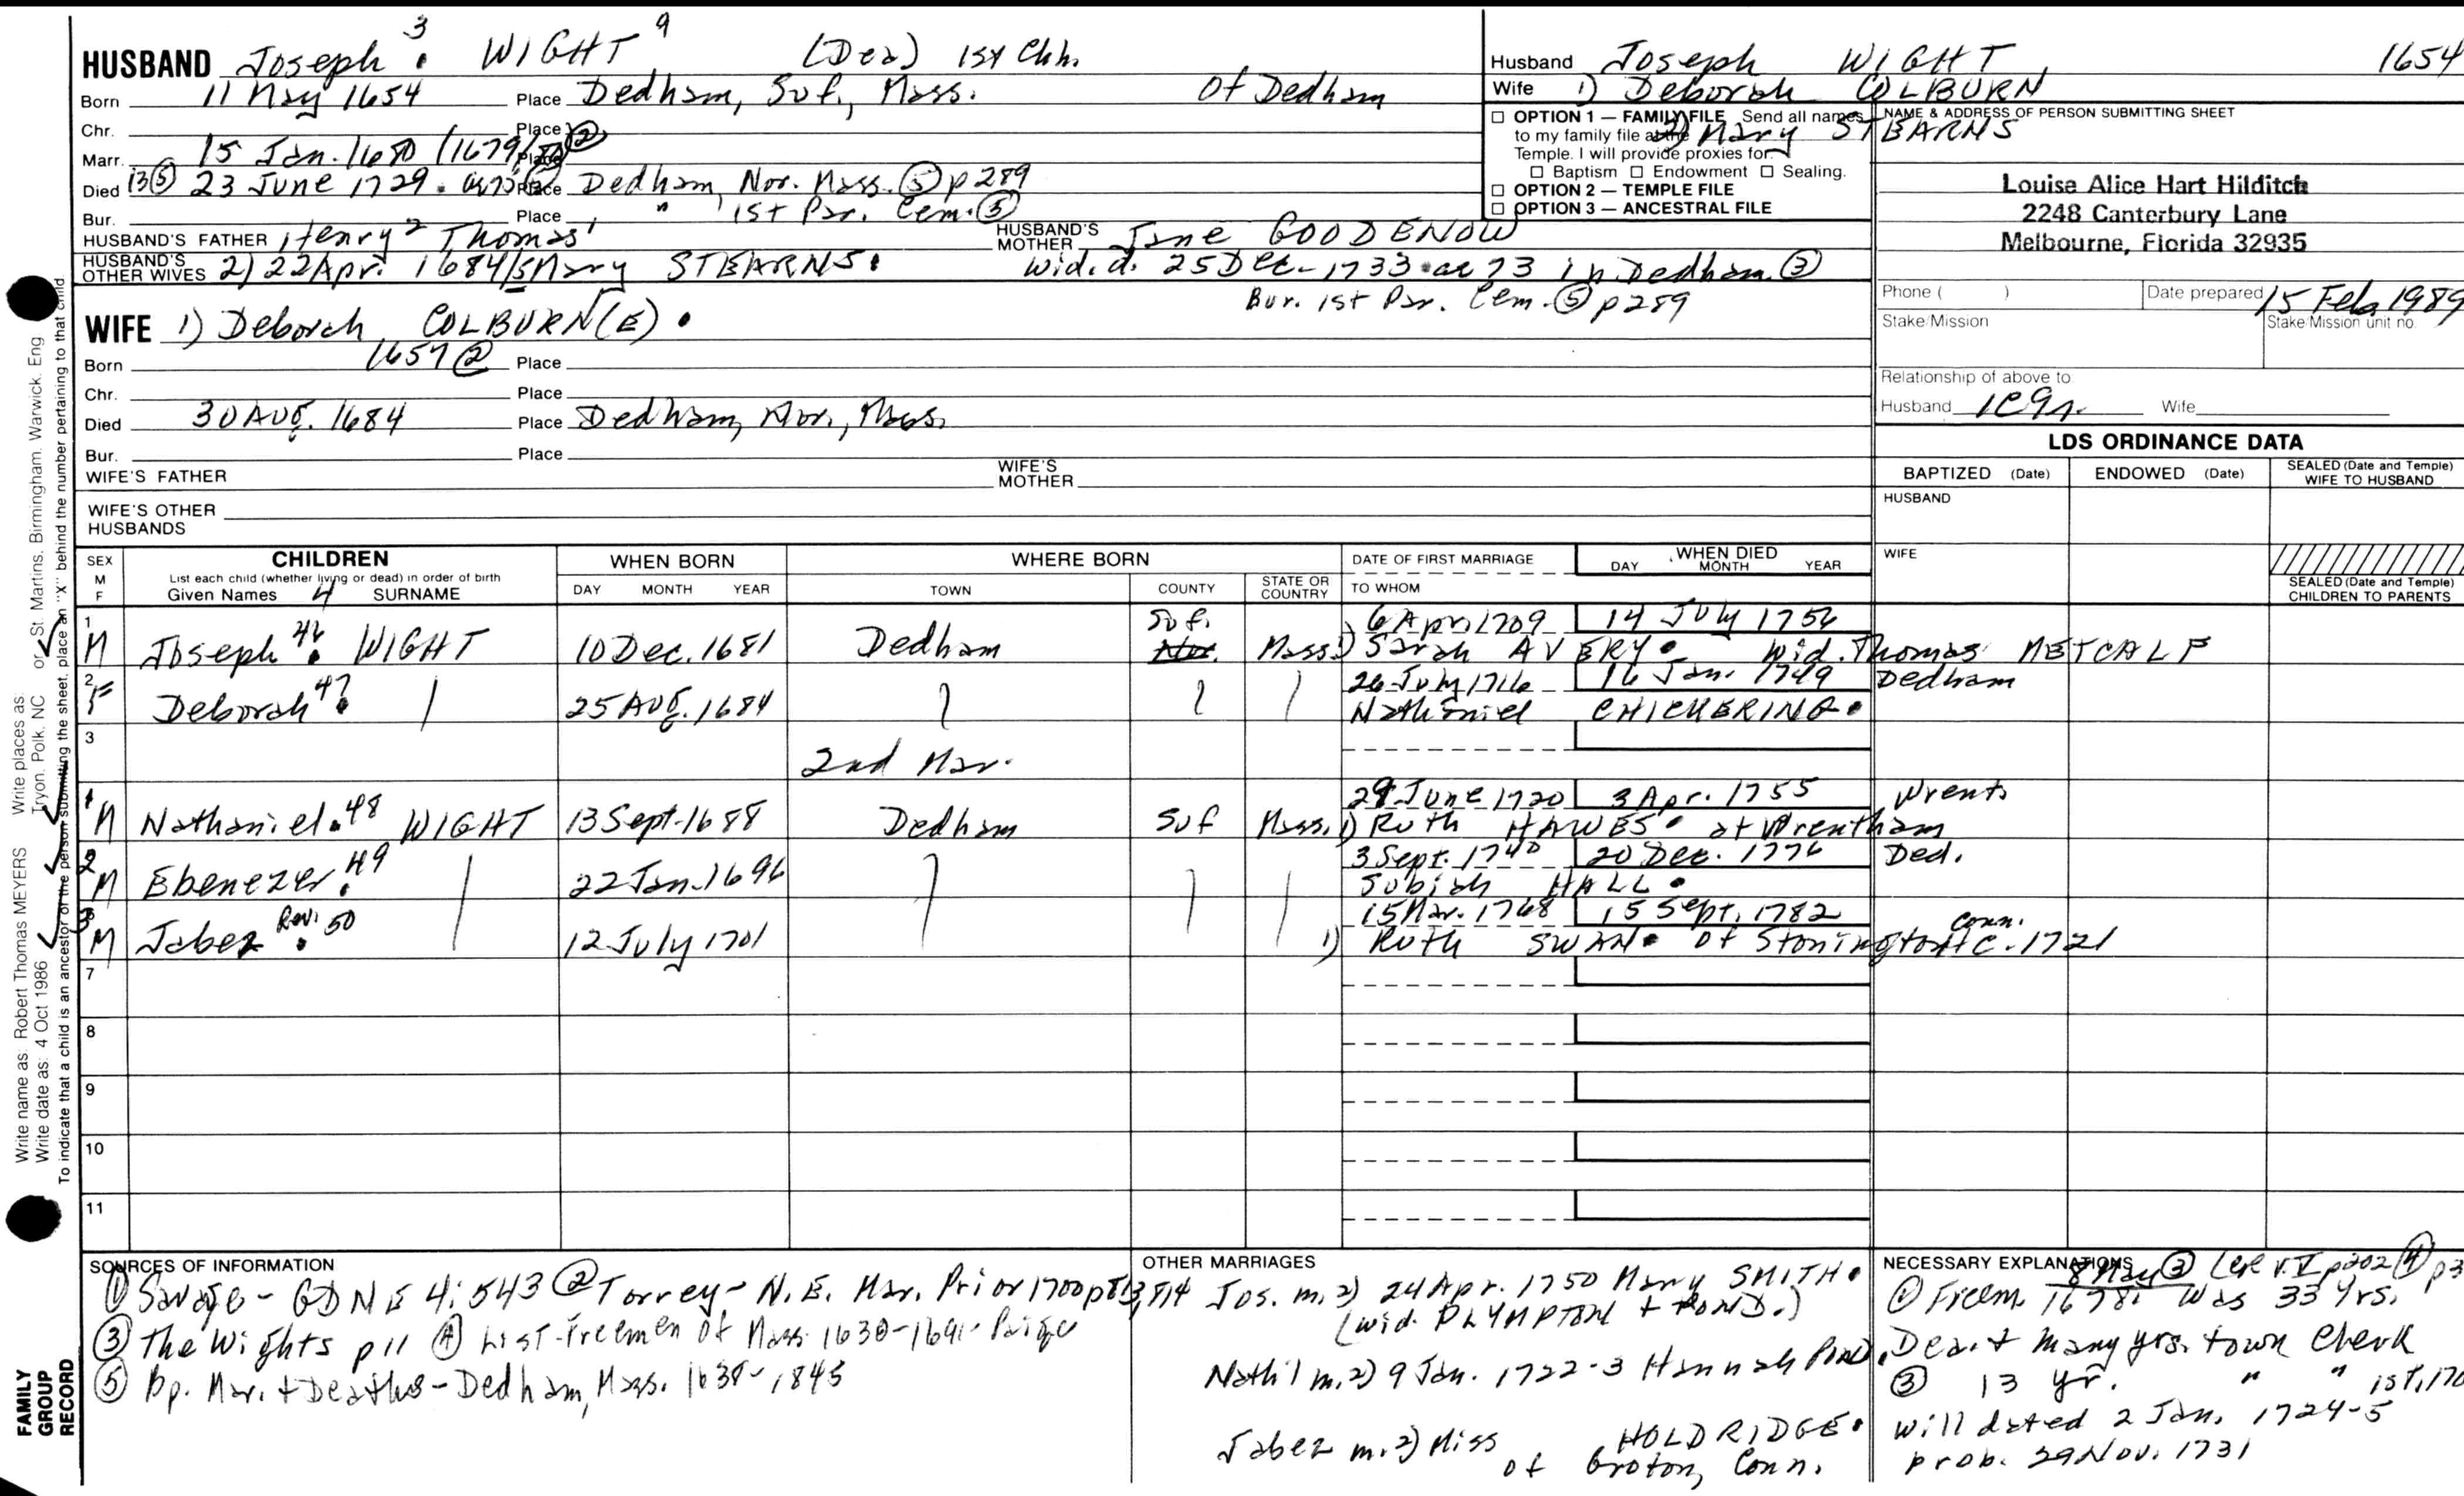 HUSBAND Joseph 3 WIGHT 9 (Dea) 1st Chh.
Born 11 May 1654 Place Dedham, Suf., Mass. Of Dedham
Chr. Place
Marr. 15 Jan. 1680 (1679/80 ② Place
Died 13 ⑤ 23 June 1729. ae 75 Place Dedham, Nor. Mass. ⑤ p 289
Bur. Place " 1st Par. Cem. ⑤
HUSBAND'S FATHER Henry 2 Thomas 1 HUSBAND'S MOTHER Jane GOODENOW
HUSBAND'S OTHER WIVES 2) 22 Apr. 1684/5 Mary STEARNS. Wid. d. 25 Dec. 1733 ae 73 in Dedham ③
Bur. 1st Par. Cem. ⑤ p 289
WIFE 1) Deborah COLBURN(E).
Born 1657 ② Place
Chr. Place
Died 30 AUG. 1684 Place Dedham, Nor., Mass.
Bur. Place
WIFE'S FATHER WIFE'S MOTHER
WIFE'S OTHER HUSBANDS
Husband Joseph WIGHT 1654
Wife 1) Deborah COLBURN
2) Mary STEARNS
OPTION 1 — FAMILY FILE Send all names
to my family file at the
Temple. I will provide proxies for:
Baptism Endowment Sealing.
OPTION 2 — TEMPLE FILE
OPTION 3 — ANCESTRAL FILE
NAME & ADDRESS OF PERSON SUBMITTING SHEET
Louise Alice Hart Hilditch
2248 Canterbury Lane
Melbourne, Florida 32935
Phone ( ) Date prepared 15 Feb 1989
Stake/Mission Stake/Mission unit no.
Relationship of above to
Husband Wife
LDS ORDINANCE DATA
BAPTIZED (Date) ENDOWED (Date) SEALED (Date and Temple) WIFE TO HUSBAND
HUSBAND
WIFE
SEALED (Date and Temple) CHILDREN TO PARENTS
SEX M F CHILDREN WHEN BORN WHERE BORN DATE OF FIRST MARRIAGE WHEN DIED
List each child (whether living or dead) in order of birth
Given Names 4 SURNAME DAY MONTH YEAR TOWN COUNTY STATE OR COUNTRY TO WHOM DAY MONTH YEAR
1 Suf. 6 Apr 1709 14 July 1756
M Joseph 46 WIGHT 10 Dec. 1681 Dedham Nor. Mass. 1) Sarah AVERY. Wid. Thomas METCALF
2 26 July 1716 16 Jan. 1749 Dedham
F Deborah 47 25 AUG. 1684 Nathaniel CHICKERING.
3
2nd Mar.
1 29 June 1720 3 Apr. 1755 Wrent.
M Nathaniel 48 WIGHT 13 Sept. 1688 Dedham Suf Mass. 1) Ruth HAWES. at Wrentham
2 3 Sept. 1740 20 Dec. 1776 Ded.
M Ebenezer 49 22 Jan. 1696 Subiah HALL.
3 15 Mar. 1768 15 Sept. 1782 Conn.
M Jabez Rev. 50 12 July 1701 1) Ruth SWAN. of Stonington c. 1721
7
8
9
10
11
SOURCES OF INFORMATION
① Savage - GDNE 4:543 ② Torrey - N.E. Mar. Prior 1700 p 813, 814
③ The Wights p 11 ④ List-Freemen of Mass. 1630-1691- Paige
⑤ Bp. Mar. + Deaths - Dedham, Mass. 1638-1845
OTHER MARRIAGES
Jos. m. 2) 24 Apr. 1750 Mary SMITH.
(wid. PLYMPTON + POND.)
Nath'l m. 2) 9 Jan. 1722-3 Hannah POND.
Jabez m. 2) Miss HOLDRIDGE.
of Groton, Conn.
NECESSARY EXPLANATIONS 8 May ③ v. I p 202 ④ p 3
① Freem. 1678. was 33 yrs.
Dea. + many yrs. town clerk
③ 13 yr. " " 1st, 170
Will dated 2 Jan. 1724-5
prob. 29 Nov. 1731
Write name as: Robert Thomas MEYERS Write places as: Tryon, Polk, NC or St. Martins, Birmingham, Warwick, Eng
Write date as: 4 Oct 1986
To indicate that a child is an ancestor of the person submitting the sheet, place an "X" behind the number pertaining to that child.
FAMILY GROUP RECORD